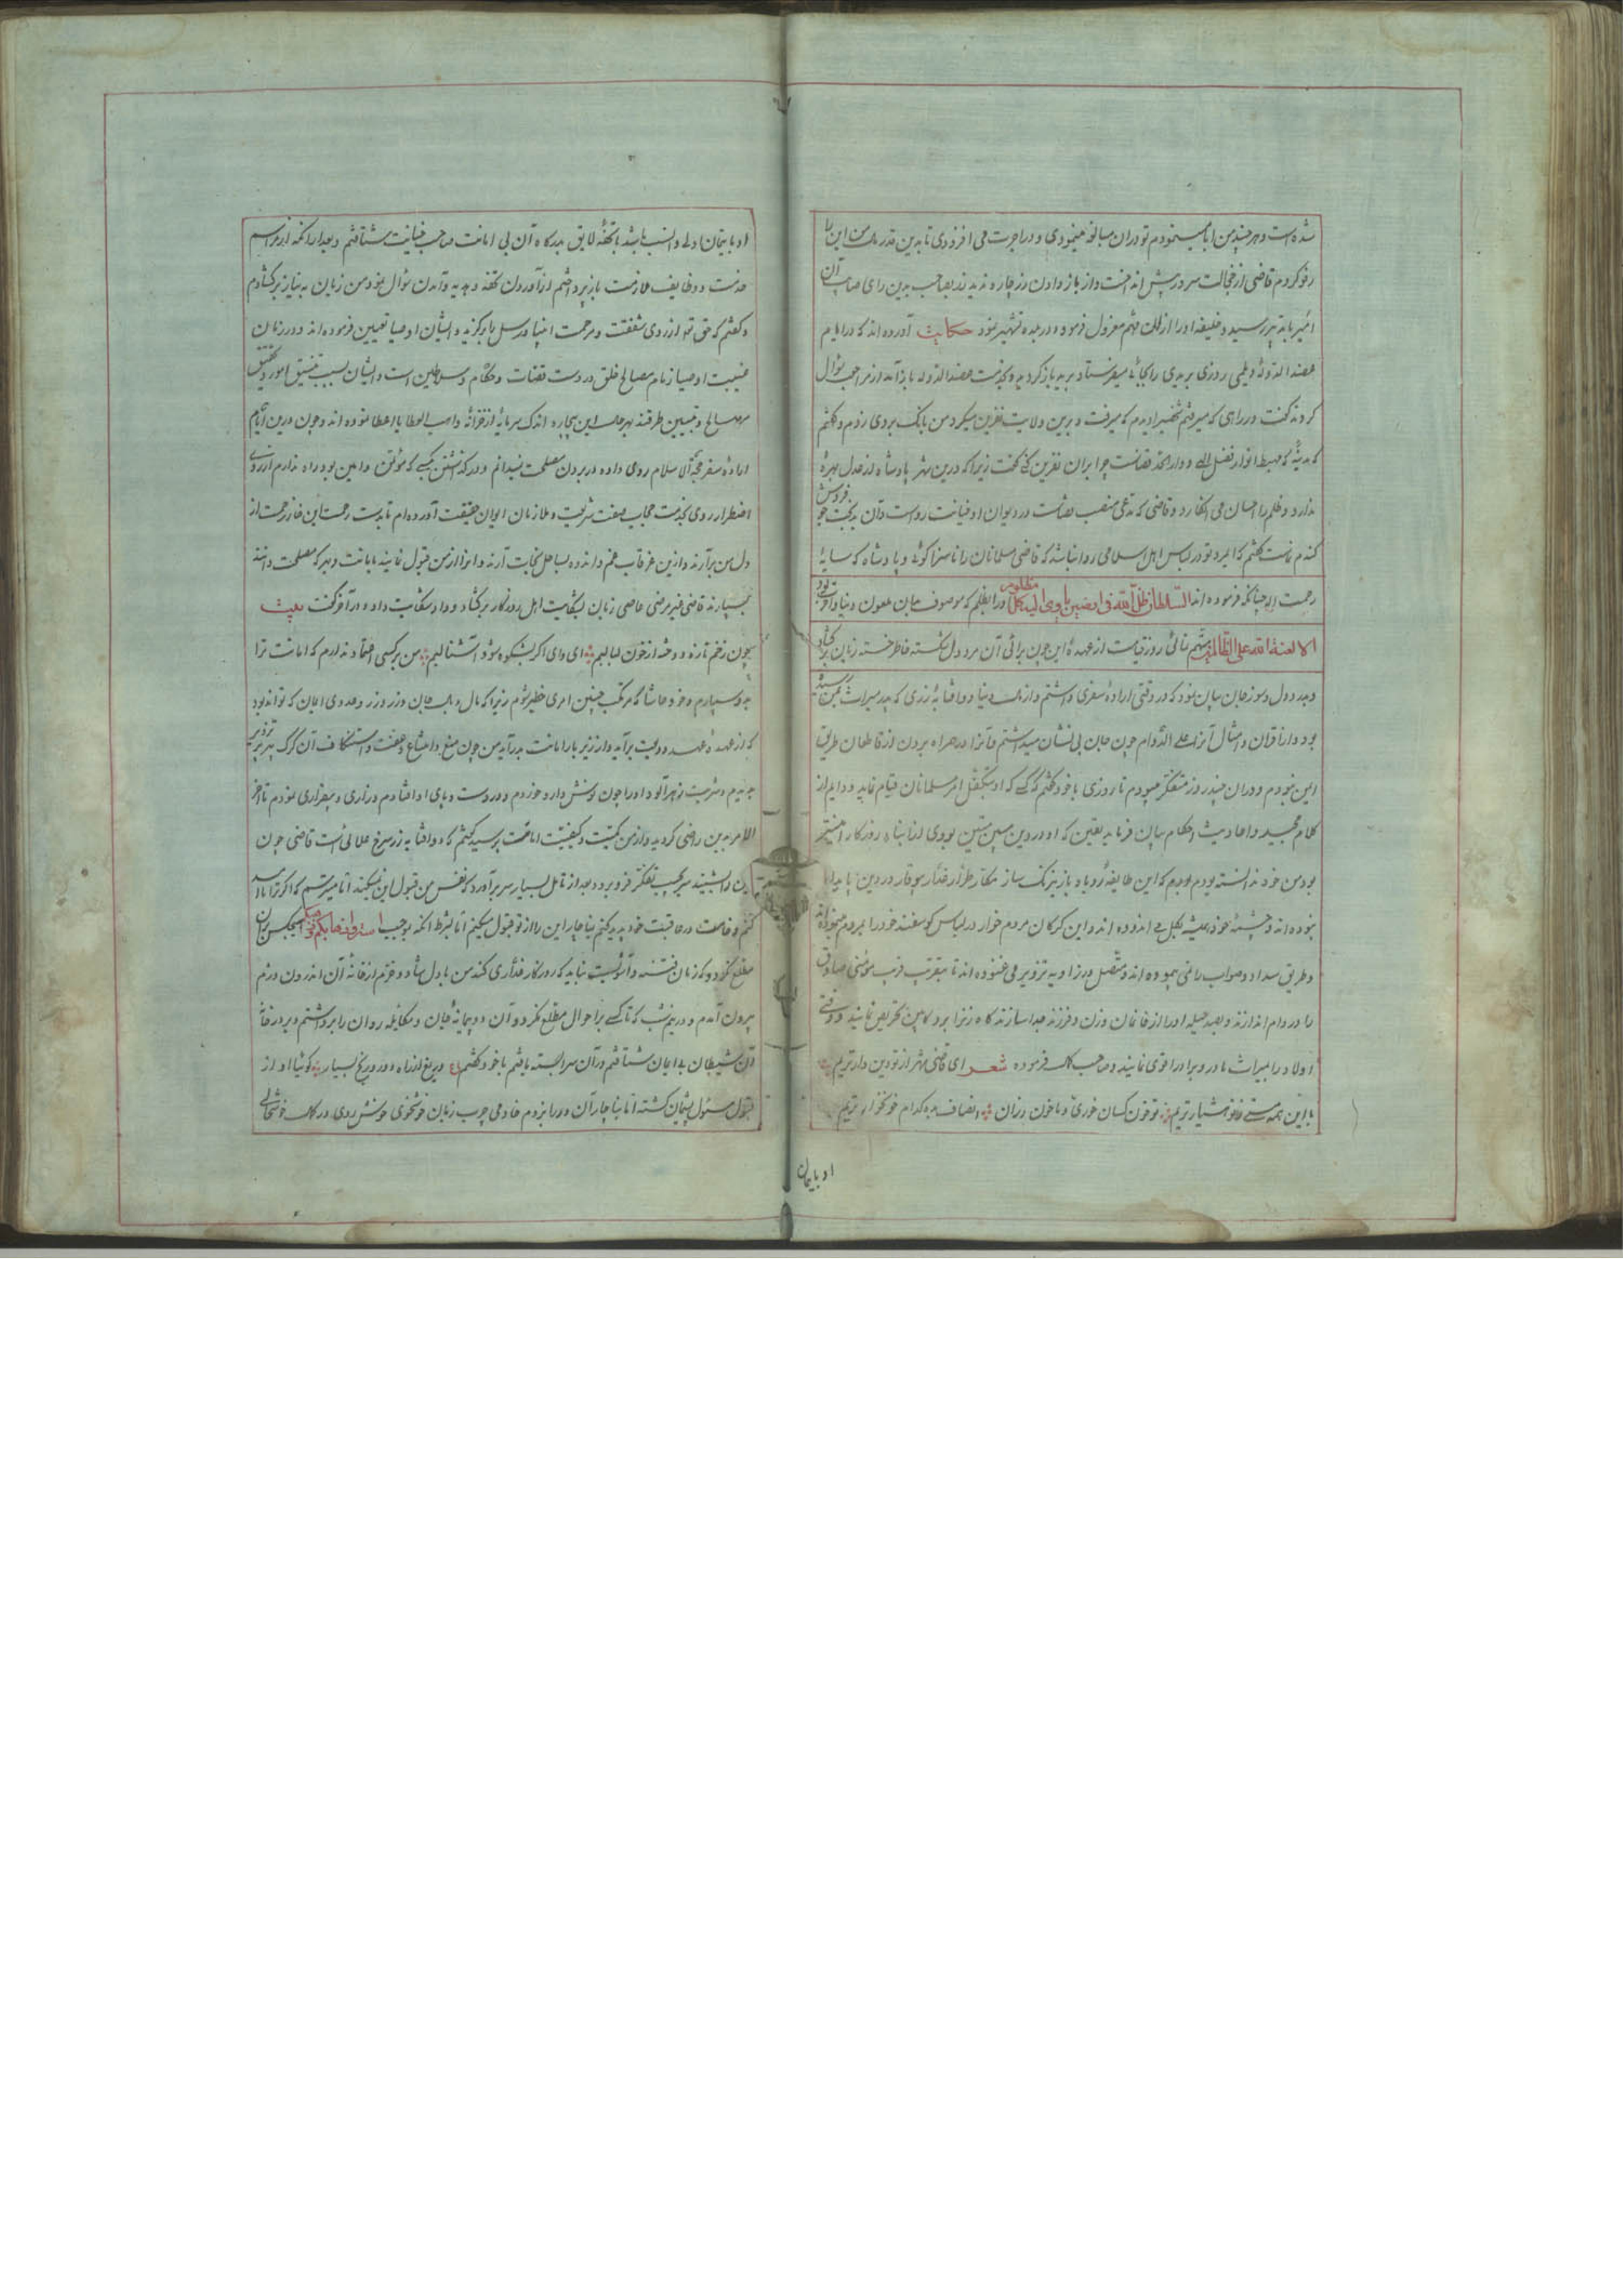 شده است و هر چند من ابا مینمودم تو در آن مبالغه مینمودی و در اجرت می افزودی تا بدین قدر من این را
رفو کردم قاضی از خجالت سر در پیش انداخت و از باز دادن زر چاره ندید زر بصاحب بدین رای صایب آن
امیر با تدبیر رسید و خلیفه او را از آن مهم معزول فرمود و در بلده تشهیر نمود حکایت آورده اند که در ایام
عضد الدوله دیلمی روزی بریدی را بجائی میفرستاد برید باز کردید و بخدمت عضد الدوله باز آمد از مراجعت سؤال
کردند گفت در راهی که میرفتم شخصی را دیدم که میرفت و برین ولایت نفرین میکرد من بانک بر وی زدم و گفتم
که مدینهٔ که مهبط انوار فضل الهی و دار الخلافتست چرا بر آن نفرین کنی گفت زیرا که درین شهر پادشاه از عدل بهرهٔ
ندارد و ظلم را احسان می انکارد و قاضی که مدعی منصب قضاست در دیوان او خیانت رواست و آن بدبخت جو فروش
گندم نماست گفتم که ای مرد تو در لباس اهل اسلامی روا نباشد که قاضی مسلمانان را ناسزا کوئی و پادشاه که سایهٔ
رحمت اله چنانکه فرموده اند السلطان ظل الله فی الارضین یأوی الیه کل مظلوم و را بظلم که موصوف بدان ملعون دنیا و آخرت بود
الا لعنة الله علی الظالمین متهم نمائی روز قیامت از عهدهٔ این چون برائی آن مرد دل شکسته خاطر خسته زبان برکشاد
و بدرد دل و سوز جان بیان نمود که در وقتی ارادهٔ سفری داشتم و از مال دنیا دو آفتابه زری که پدر میراث بمن رسیده
بود و از اقران و امثال آنرا علی الدوام چون جان بی نشان میداشتم و آنرا در همراه بردن از قاطعان طریق
ایمن نبودم و در آن چند روز متفکر میبودم تا روزی با خود گفتم که کسی که او بتکفل امر مسلمانان قیام نماید و دایم از
کلام مجید و احادیث احکام بیان فرماید یقین که او در دین مبین متین بودی از ابناء روزکار
بود من خود ندانسته بودم که این طایفهٔ روباه باز نیرنک ساز مکار طرار غدار
بوده اند و چشمهٔ خورشید بگل می اندوده اند و این گرکان مردم خوار در لباس گوسفند خود را بمردم مینموده اند
و طریق سداد و صواب را نمی پیموده اند و متصل در زاویه تزویر می غنوده اند تا بتقرب فریب مؤمنی صادق
را در دام اندازند و بصد حیله او را از خانمان و زن و فرزند جدا سازند کاه زنرا بر کابین تحریص نمایند و وقتی
اولاد را بمیراث مادر و برادر اقوی نمایند و صاحب کمال فرموده شعر ای قاضی شهر از تو دین دارتریم
با این همه مستی ز تو هشیارتریم تو خون کسان خوری و ما خون رزان انصاف بده کدام خونخوارتریم
او بایمان
او بایمان اولی و انسب باشد با تحفهٔ لایق بدرکاه آن بی امانت صاحب خیانت شتافتم و بعد از آنکه از مراسم
خدمت و وظایف ملازمت باز پرداختم از آوردن تحفه و هدیه و آمدن سؤال نمود من زبان به نیاز برکشادم
و گفتم که حق تعالی از روی شفقت و مرحمت انبیا و رسل را برکزید و ایشان اوصیا تعیین فرموده اند و در زمان
غیبت اوصیا زمام مصالح خلق در دست قضات و حکام و سلاطین است و ایشان بسبب تنسیق امور و تحقیق
مصالح و تبیین طرقند بهر حال این بیچاره اندک سرمایهٔ از خزانهٔ واهب العطایا اعطا نموده اند و چون درین ایام
ارادهٔ سفر حجة الاسلام روی داده در بردن مصلحت نمیدانم و در گذاشتن بکسی که موثق و امین بود راه ندارم از روی
اضطرار روی بخدمت جناب صفت شریعت و ملازمان ایوان حقیقت آورده ام تا بدست رحمت این خار زحمت از
دل من برآرند و ازین غرقاب غم و اندوه بساحل نجات آرند و این را از من قبول نمایند بامانت و بهر که مصلحت دانند
بسپارند قاضی غیر مرضی عاصی زبان بشکایت اهل روزکار برکشاد و داد شکایت داد و در آخر گفت بیت
چون زخم تازه دوخته از خون لبالبیم ای وای اکر بشکوه شود آشنا لبیم من بر کسی اعتماد ندارم که امانت ترا
بدو سپارم و خود حاشا که مرتکب چنین امری خطیر شوم زیرا که مال و بال جان و زر وزر و عدوی ایمان که تواند بود
که از عهدهٔ عهد ودیعت برآید و از زیر بار امانت بدر آید من چون منع و امتناع و عفت و استنکاف آن گرک پیر پر تزویر
بدیدم و شربت زهرآلود او را چون نوش دارو خوردم و در دست و پای او افتادم و زاری و بیقراری نمودم تا آخر
الامر بدین راضی کردید و از من کمیت و کیفیت امانت پرسید گفتم که دو آفتابه زر سرخ طلائی است قاضی چون
این را شنید سر بجیب تفکر فرو برد و بعد از تامل بسیار سر برآورد که نفس من قبول این نمیکند اما میترسم که اکر ترا ناامید
کنم وخامت در عاقبت خود پدید کنم بناچار این را از تو قبول میکنم اما بشرط آنکه بموجب هیچکس بران
مطلع نکردد که زمان فتنه و آشوبست نباید که روزکار غداری کند من با دل شاد و خرم از خانهٔ آن اندرون دژم
بیرون آمدم و در نیم شب که تا کسی بر احوال مطلع نکردد آن دو پیمانهٔ جان و مکایله روان را برداشتم و بر در خانهٔ
آن شیطان بی ایمان شتافتم در آن سرا بسته یافتم با خود گفتم ع دریغ از راه دور و رنج بسیار کوئیا او از
قبول مسؤل پشیمان کشته اما بناچار آن در را بزدم خادمی چرب زبان خوشخوی خوش روی در کمال خوشحالی